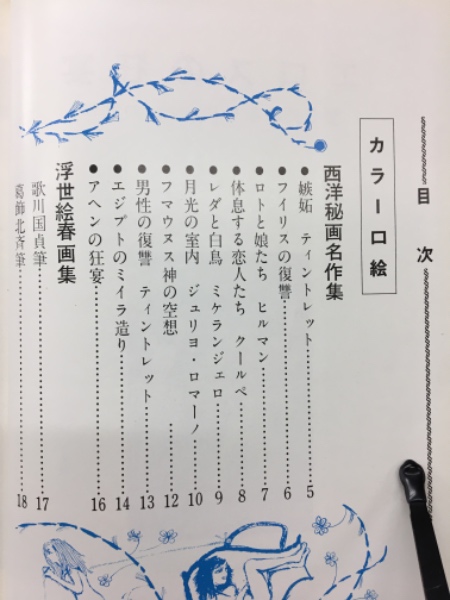 目次
カラー口絵
西洋秘画名作集
●嫉妬 ティントレット………5
●フイリスの復讐………6
●ロトと娘たち ヒルマン………7
●体息する恋人たち クールベ………8
●レダと白鳥 ミケランジェロ………9
●月光の室内 ジュリヨ・ロマーノ………10
●フマウヌス神の空想………12
●男性の復讐 ティントレット………13
●エジプトのミイラ造り………14
●アヘンの狂宴………16
浮世絵春画集
歌川国貞筆………17
葛飾北斉筆………18